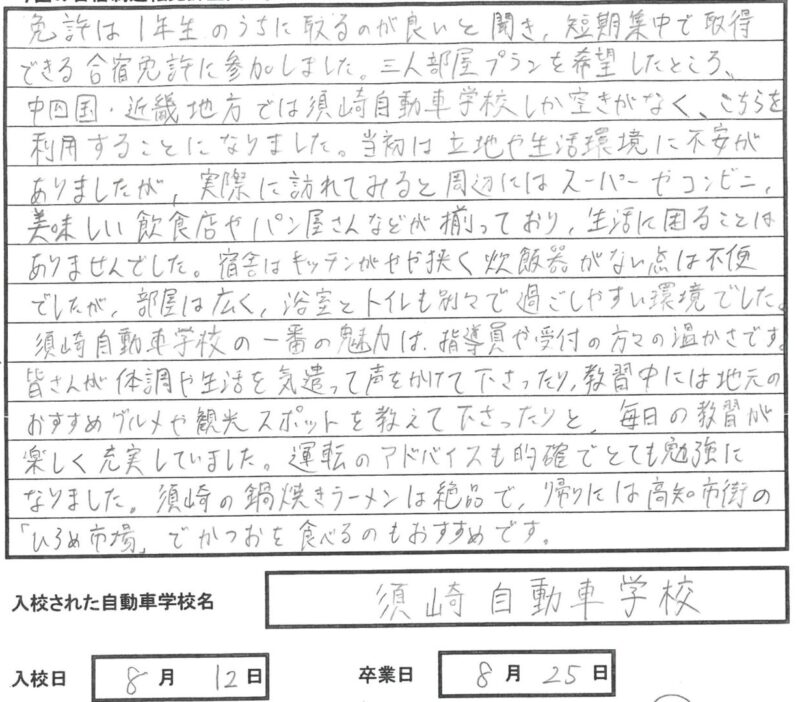 免許は1年生のうちに取るのが良いと聞き、短期集中で取得
できる合宿免許に参加しました。三人部屋プランを希望したところ、
中四国・近畿地方では須崎自動車学校しか空きがなく、こちらを
利用することになりました。当初は立地や生活環境に不安が
ありましたが、実際に訪れてみると周辺にはスーパーやコンビニ、
美味しい飲食店やパン屋さんなどが揃っており、生活に困ることは
ありませんでした。宿舎はキッチンがやや狭く炊飯器がない点は不便
でしたが、部屋は広く、浴室とトイレも別々で過ごしやすい環境でした。
須崎自動車学校の一番の魅力は、指導員や受付の方々の温かさです。
皆さんが体調や生活を気遣って声をかけて下さったり、教習中には地元の
おすすめグルメや観光スポットを教えて下さったりと、毎日の教習が
楽しく充実していました。運転のアドバイスも的確でとても勉強に
なりました。須崎の鍋焼きラーメンは絶品で、帰りには高知市街の
「ひろめ市場」でかつおを食べるのもおすすめです。
入校された自動車学校名 須崎自動車学校
入校日 8月12日 卒業日 8月25日